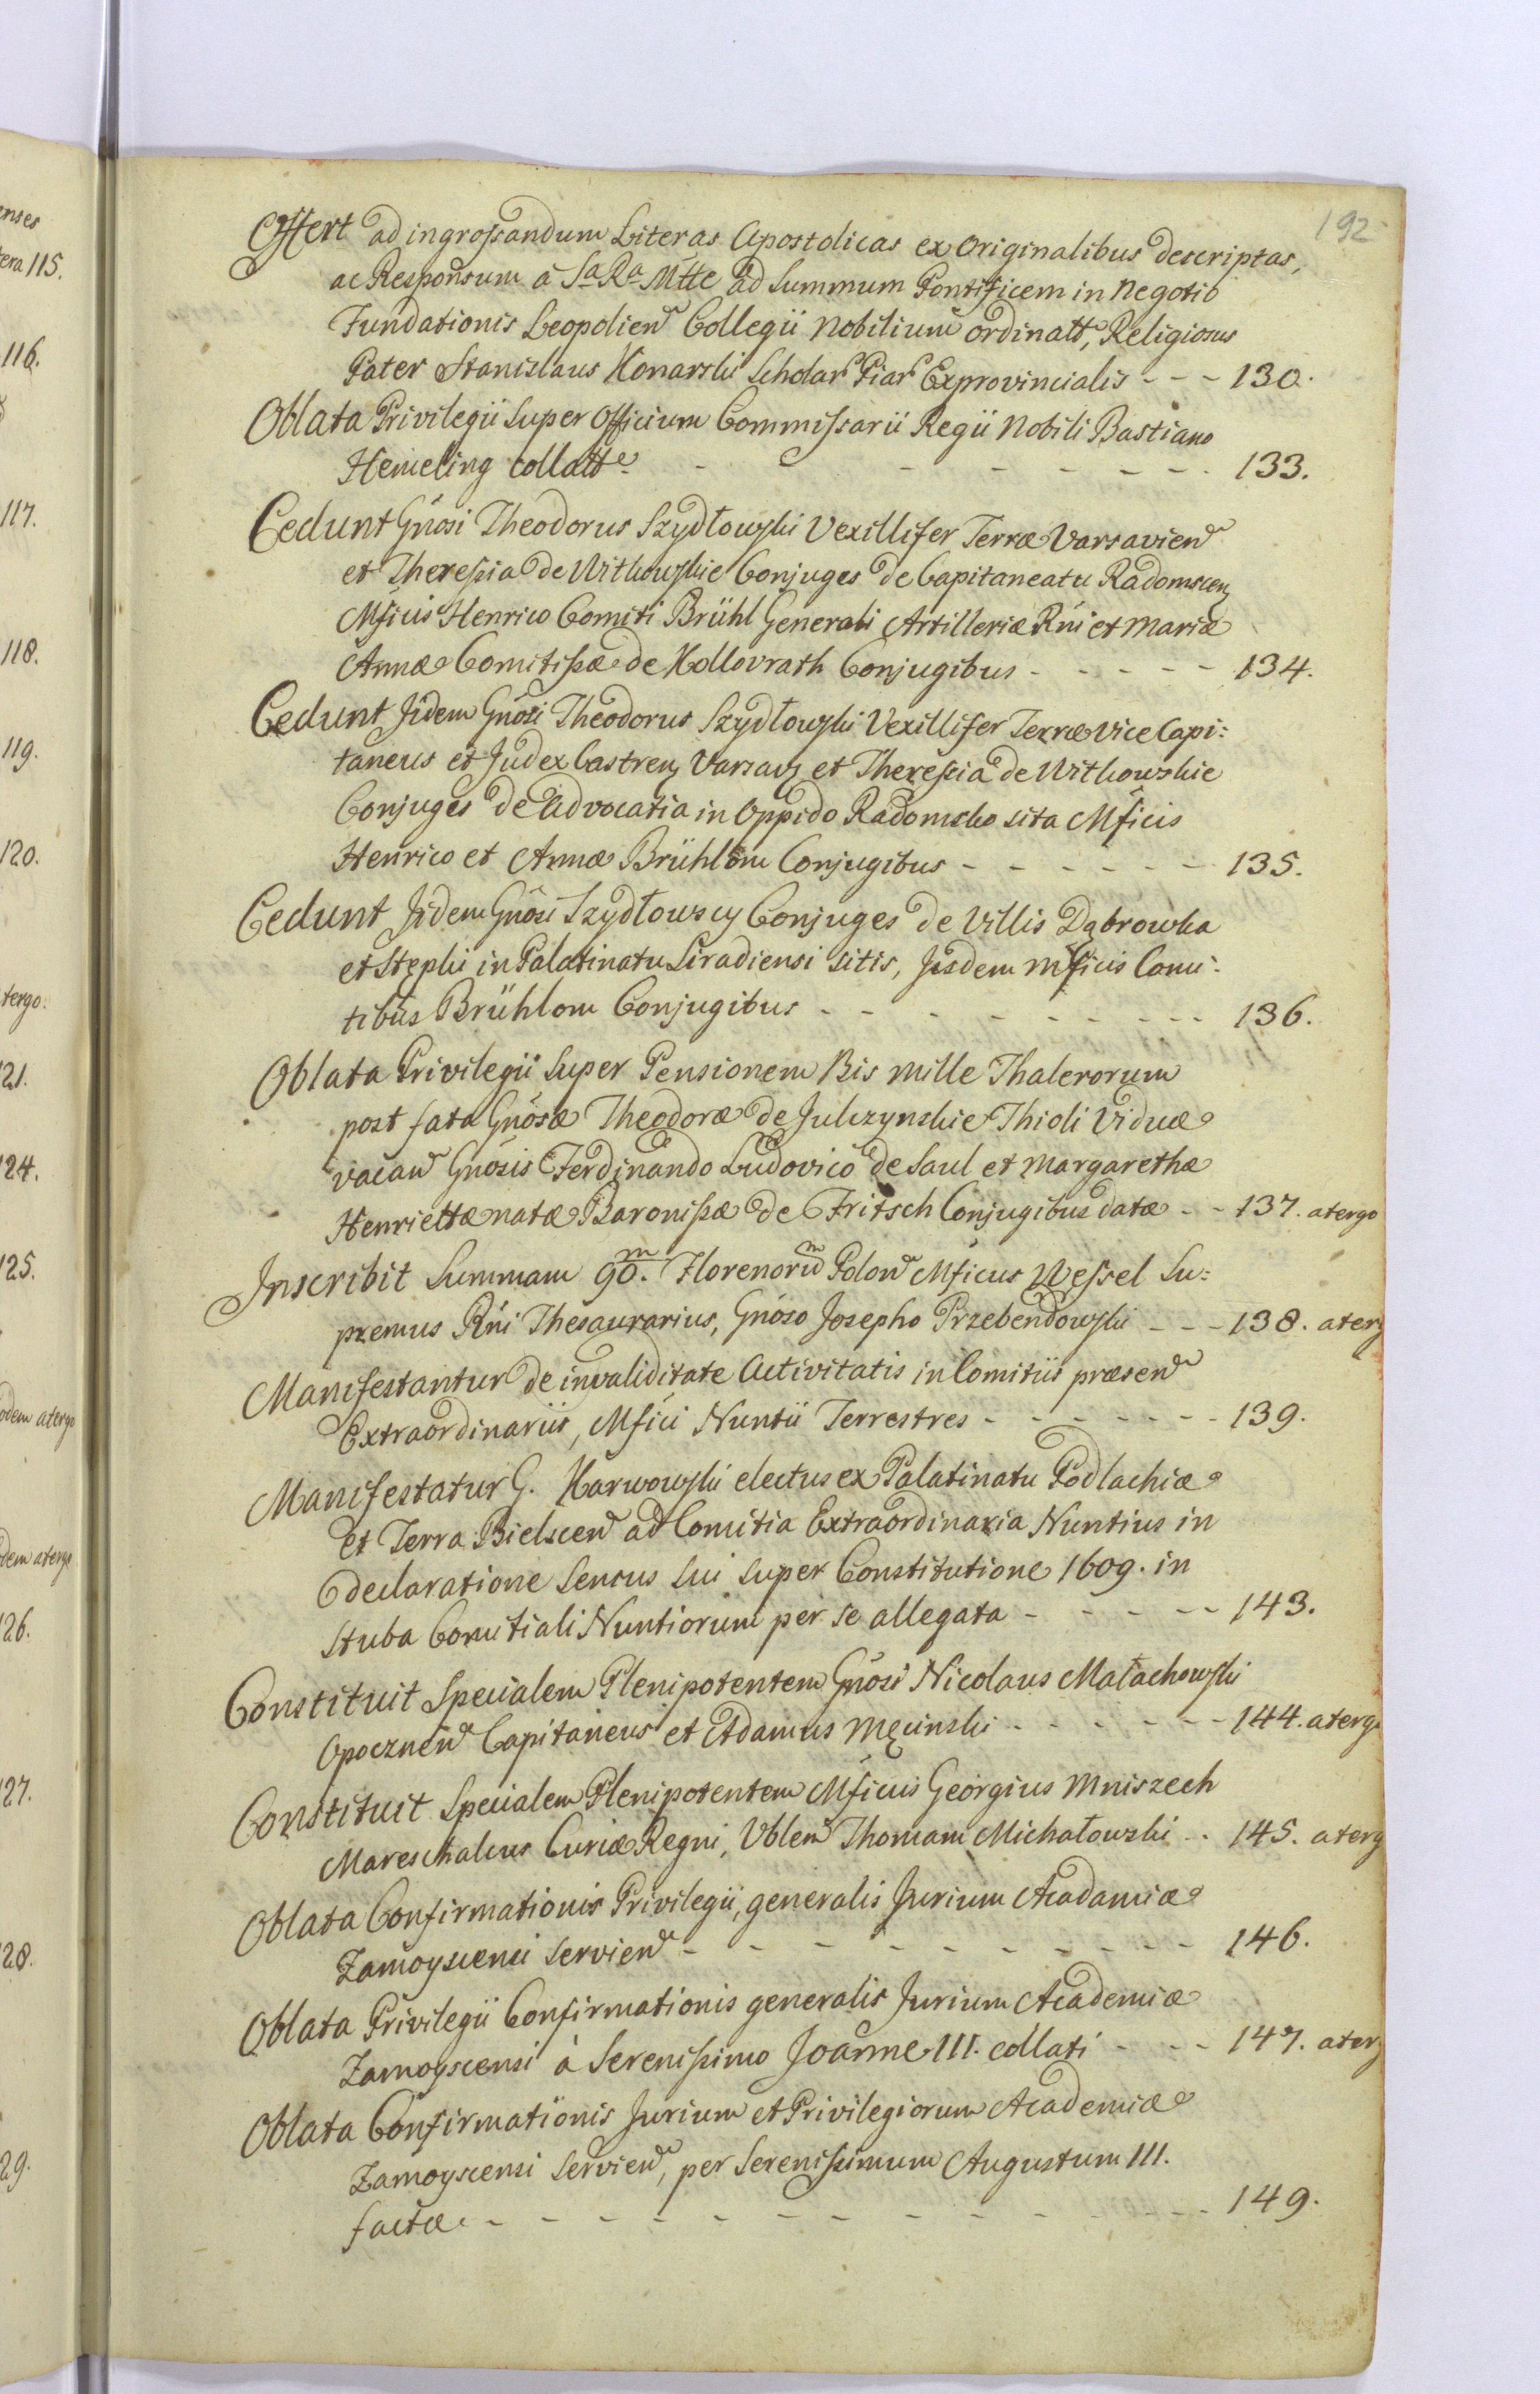 192
Offert ad ingrossandum Literas Apostolicas ex Originalibus descriptas,
ac Responsum a Sa Ra Mtte ad Summum Pontificem in Negotio
Fundationis Leopolien Collegii Nobilium ordinatt, Religiosus
Pater Stanislaus Konarski Scholar Piar Exprovincialis - - - 130.
Oblata Privilegii super Officium Commissarii Regii Nobili Bastiano
Hemeling collatt - - - - - - - 133.
Cedunt Gnosi Theodorus Szydłowski Vexillifer Terræ Varsavien
et Theresia de Witkowskie Conjuges de Capitaneatu Radomscen
Mficis Henrico Comiti Brühl Generali Artilleriæ Rni et Mariæ
Annæ Comitissæ de Kollovrath Conjugibus - - - - - 134.
Cedunt Jidem Gnosi Theodorus Szydłowski Vexillifer Terræ Vice Capi:
taneus et Judex Castren Varsav et Theresia de Witkowskie
Conjuges de Advocatia in Oppido Radomsko sita Mficis
Henrico et Annæ Brühlom Conjugibus - - - - - - 135.
Cedunt Jidem Gnosi Szydłowscy Conjuges de Villis Dąbrowka
et Stępki in Palatinatu Siradiensi sitis, Jisdem Mficis Comi:
tibus Brühlom Conjugibus - - - - - - - - 136.
Oblata Privilegii super Pensionem Bis mille Thalerorum
post fata Gnosæ Theodoræ de Julczynskie Thioli Viduæ
vacan Gnosis Ferdinando Ludovico de Saul et Margarethæ
Henriettæ natæ Baronissæ de Fritsch Conjugibus datæ - - 137. atergo
Inscribit Summam 90.m Florenorum Polon Mficus Wessel Su:
premus Rni Thesaurarius, Gnoso Josepho Przebendowski - - - 138. aterg
Manifestantur de invaliditate Activitatis in Comitiis præsen
Extraordinariis, Mfici Nuntii Terrestres - - - - - - - 139.
Manifestatur G. Karwowski electus ex Palatinatu Podlachiæ
et Terra Bielscen ad Comitia Extraordinaria Nuntius in
declaratione sensus sui super Constitutione 1609. in
stuba Comitiali Nuntiorum per se allegata - - - - - 143.
Constituit Specialem Plenipotentem Gnosi Nicolaus Małachowski
Opocznen Capitaneus et Adamus Męcinski - - - - - - - 144. aterg
Constituit Specialem Plenipotentem Mficus Georgius Mniszech
Mareschalcus Curiæ Regni, Vblem Thomam Michałowski - - 145. aterg
Oblata Confirmationis Privilegii, generalis Jurium Acadamiæ
Zamoyscensi servien - - - - - - - - 146.
Oblata Privilegii Confirmationis generalis Jurium Academiæ
Zamoyscensi à Serenissimo Joanne III. collati - - - 147. aterg
Oblata Confirmationis Jurium et Privilegiorum Academiæ
Zamoyscensi servien, per Serenissimum Augustum III.
factæ - - - - - - - - - - - 149.
enses
era 115.
116.
117.
118.
119.
120.
tergo.
121.
124.
125.
odem atergo
dem atergo
126.
127.
28.
29.